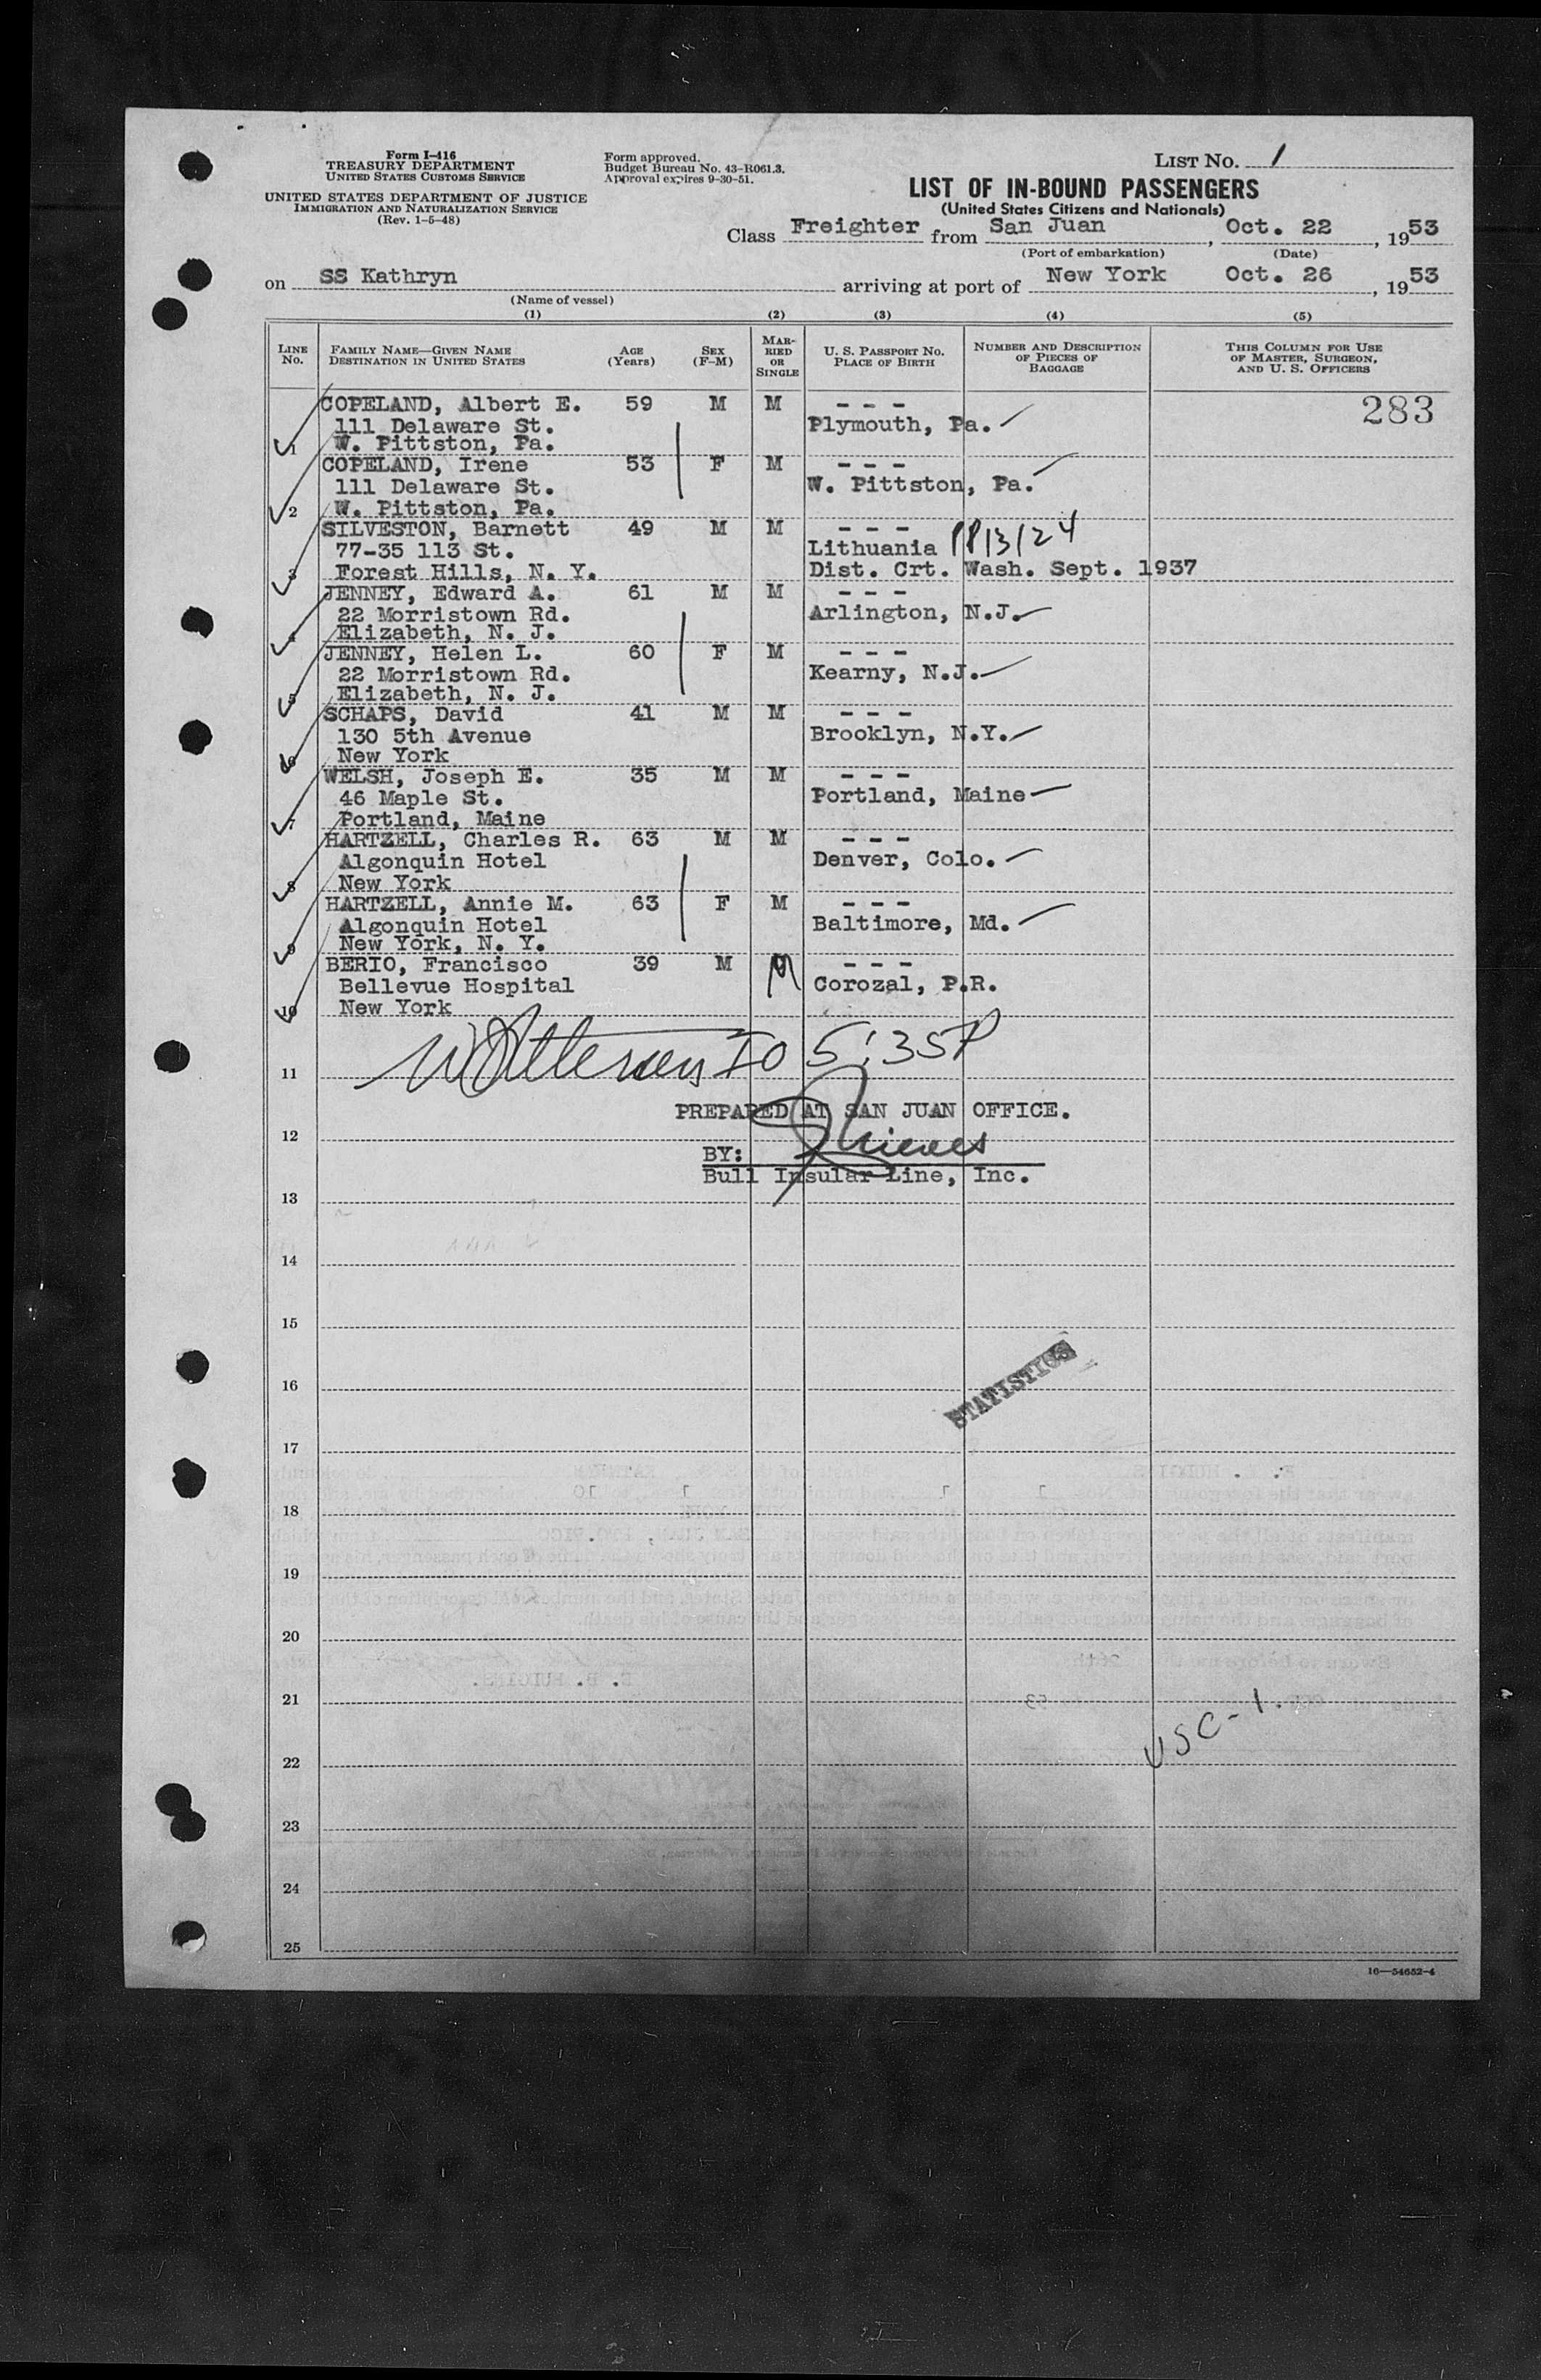 Form I-416
TREASURY DEPARTMENT
UNITED STATES CUSTOMS SERVICE
UNITED STATES DEPARTMENT OF JUSTICE
IMMIGRATION AND NATURALIZATION SERVICE
(Rev. 1-5-48)
Form approved.
Budget Bureau No. 43-R061.3.
Approval expires 9-30-51.
LIST NO. 1
LIST OF IN-BOUND PASSENGERS
(United States Citizens and Nationals)
Class Freighter from San Juan, Oct. 22, 1953
(Port of embarkation) (Date)
on SS Kathryn arriving at port of New York Oct. 26, 1953
(Name of vessel)
(1) (2) (3) (4) (5)
LINE NO.
FAMILY NAME—GIVEN NAME
DESTINATION IN UNITED STATES
AGE (Years)
SEX (F-M)
MARRIED OR SINGLE
U. S. PASSPORT NO.
PLACE OF BIRTH
NUMBER AND DESCRIPTION OF PIECES OF BAGGAGE
THIS COLUMN FOR USE OF MASTER, SURGEON, AND U. S. OFFICERS
283
COPELAND, Albert E. 59 M M - - -
111 Delaware St. Plymouth, Pa.
1 W. Pittston, Pa.
COPELAND, Irene 53 F M - - -
111 Delaware St. W. Pittston, Pa.
2 W. Pittston, Pa.
SILVESTON, Barnett 49 M M - - -
77-35 113 St. Lithuania PP13124
3 Forest Hills, N. Y. Dist. Crt. Wash. Sept. 1937
JENNEY, Edward A. 61 M M - - -
22 Morristown Rd. Arlington, N.J.
4 Elizabeth, N. J.
JENNEY, Helen L. 60 F M - - -
22 Morristown Rd. Kearny, N.J.
5 Elizabeth, N. J.
SCHAPS, David 41 M M - - -
130 5th Avenue Brooklyn, N.Y.
6 New York
WELSH, Joseph E. 35 M M - - -
46 Maple St. Portland, Maine
7 Portland, Maine
HARTZELL, Charles R. 63 M M - - -
Algonquin Hotel Denver, Colo.
8 New York
HARTZELL, Annie M. 63 F M - - -
Algonquin Hotel Baltimore, Md.
9 New York, N. Y.
BERIO, Francisco 39 M M - - -
Bellevue Hospital Corozal, P.R.
10 New York
IO 5:35P
11
PREPARED AT SAN JUAN OFFICE.
12
BY: Nieves
Bull Insular Line, Inc.
13
14
15
16
STATISTICS
17
18
19
20
21
USC-1.
22
23
24
25
16—54652-4